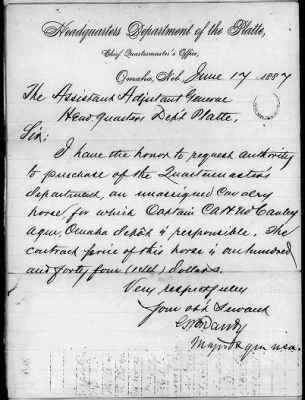 Headquarters Department of the Platte,
Chief Quartermaster's Office,
Omaha, Neb. June 17, 1887
The Assistant Adjutant General
Head-quarters Dep't Platte,
Sir:
I have the honor to request authority
to purchase of the Quartermaster's
department, an unassigned Cavalry
horse, for which Captain
Omaha depot is responsible. The
contract price of this horse is one hundred
and forty four (144) dollars.
Very respectfully
Your obdt Servant
G B Dandy
Major & qm usa.